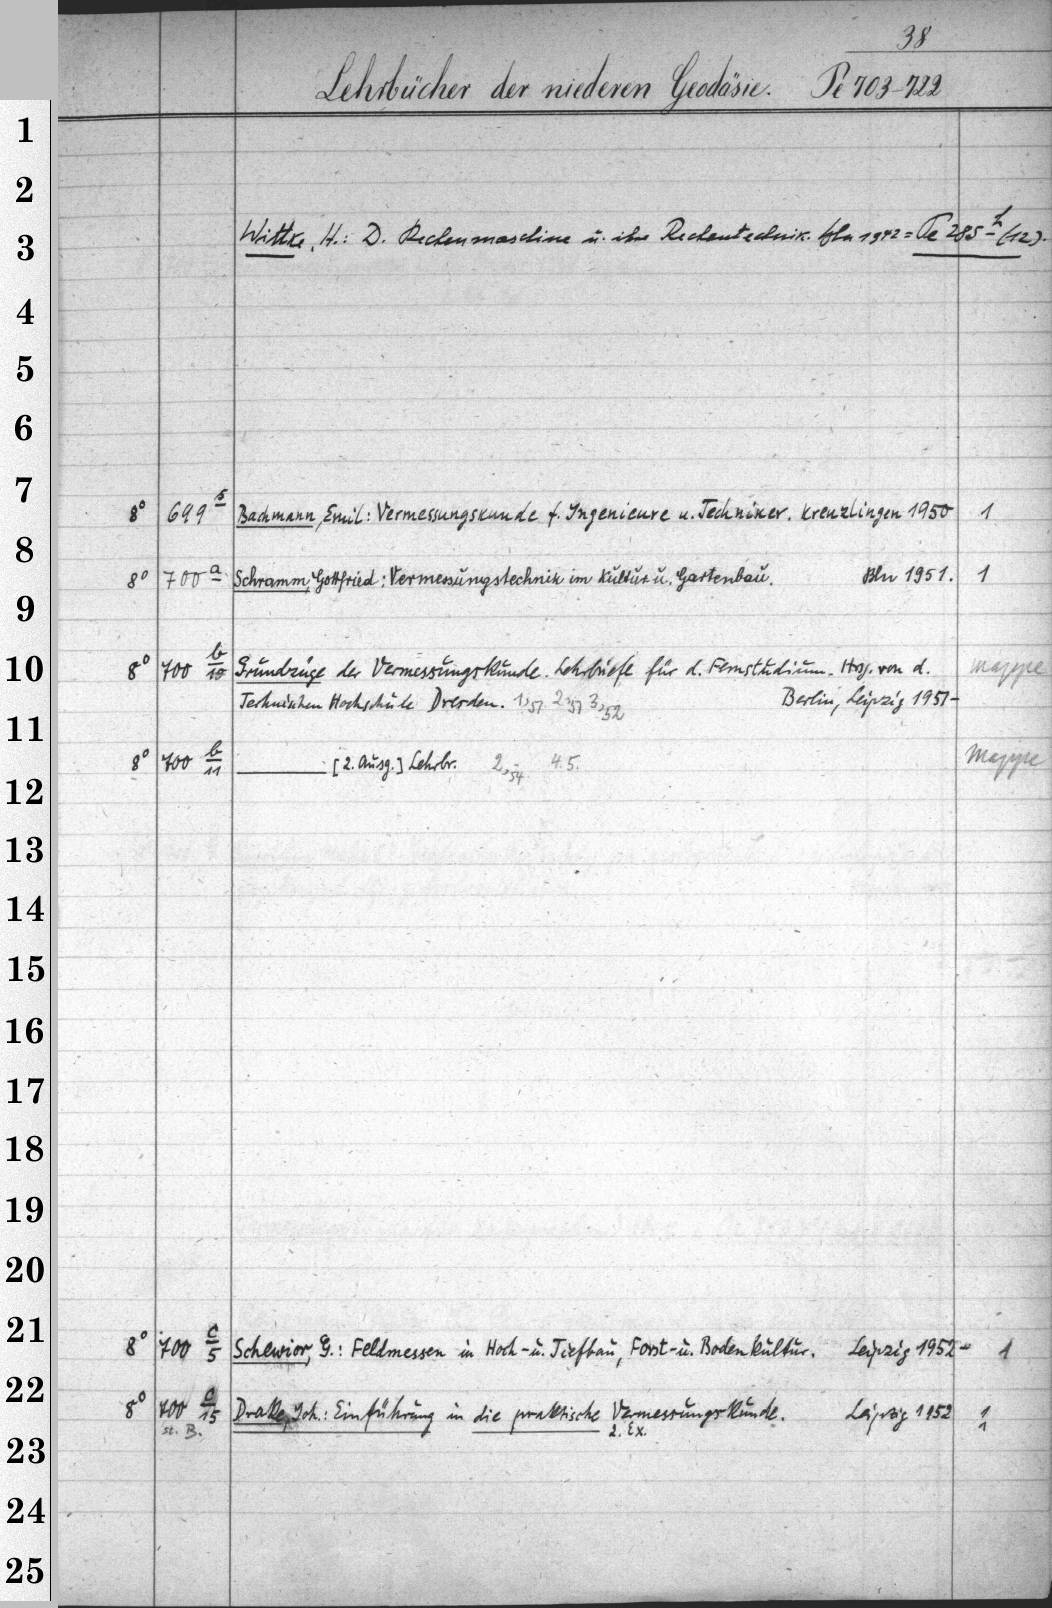 38
Lehrbücher der niederen Geodäsie. Pe 703-722
1
2
3 Wittke, H.: D. Rechenmaschine u. ihre Rechentechnik. Bln 1942 = Pe 285 (12).
4
5
6
7 8° 699 s Bachmann, Emil: Vermessungskunde f. Ingenieure u. Techniker. Kreuzlingen 1950 1
8 8° 700 a Schramm, Gottfried: Vermessungstechnik im Kultur u. Gartenbau. Bln 1951. 1
9
10 8° 700 b/10 Grundzüge der Vermessungskunde. Lehrbriefe für d. Fernstudium. Hrsg. von d. Mappe
Technischen Hochschule Dresden. 1,51 2,51 3,52 Berlin, Leipzig 1951-
11 8° 700 b/11 ——— [2. Ausg.] Lehrbr. 2,54 4.5. Mappe
12
13
14
15
16
17
18
19
20
21 8° 700 c/5 Schewior, G.: Feldmessen in Hoch- u. Tiefbau, Forst- u. Bodenkultur. Leipzig 1952- 1
22 8° 700 c/15 Drake, Joh.: Einführung in die praktische Vermessungskunde. Leipzig 1952 1
st. B. 2. Ex. 1
23
24
25